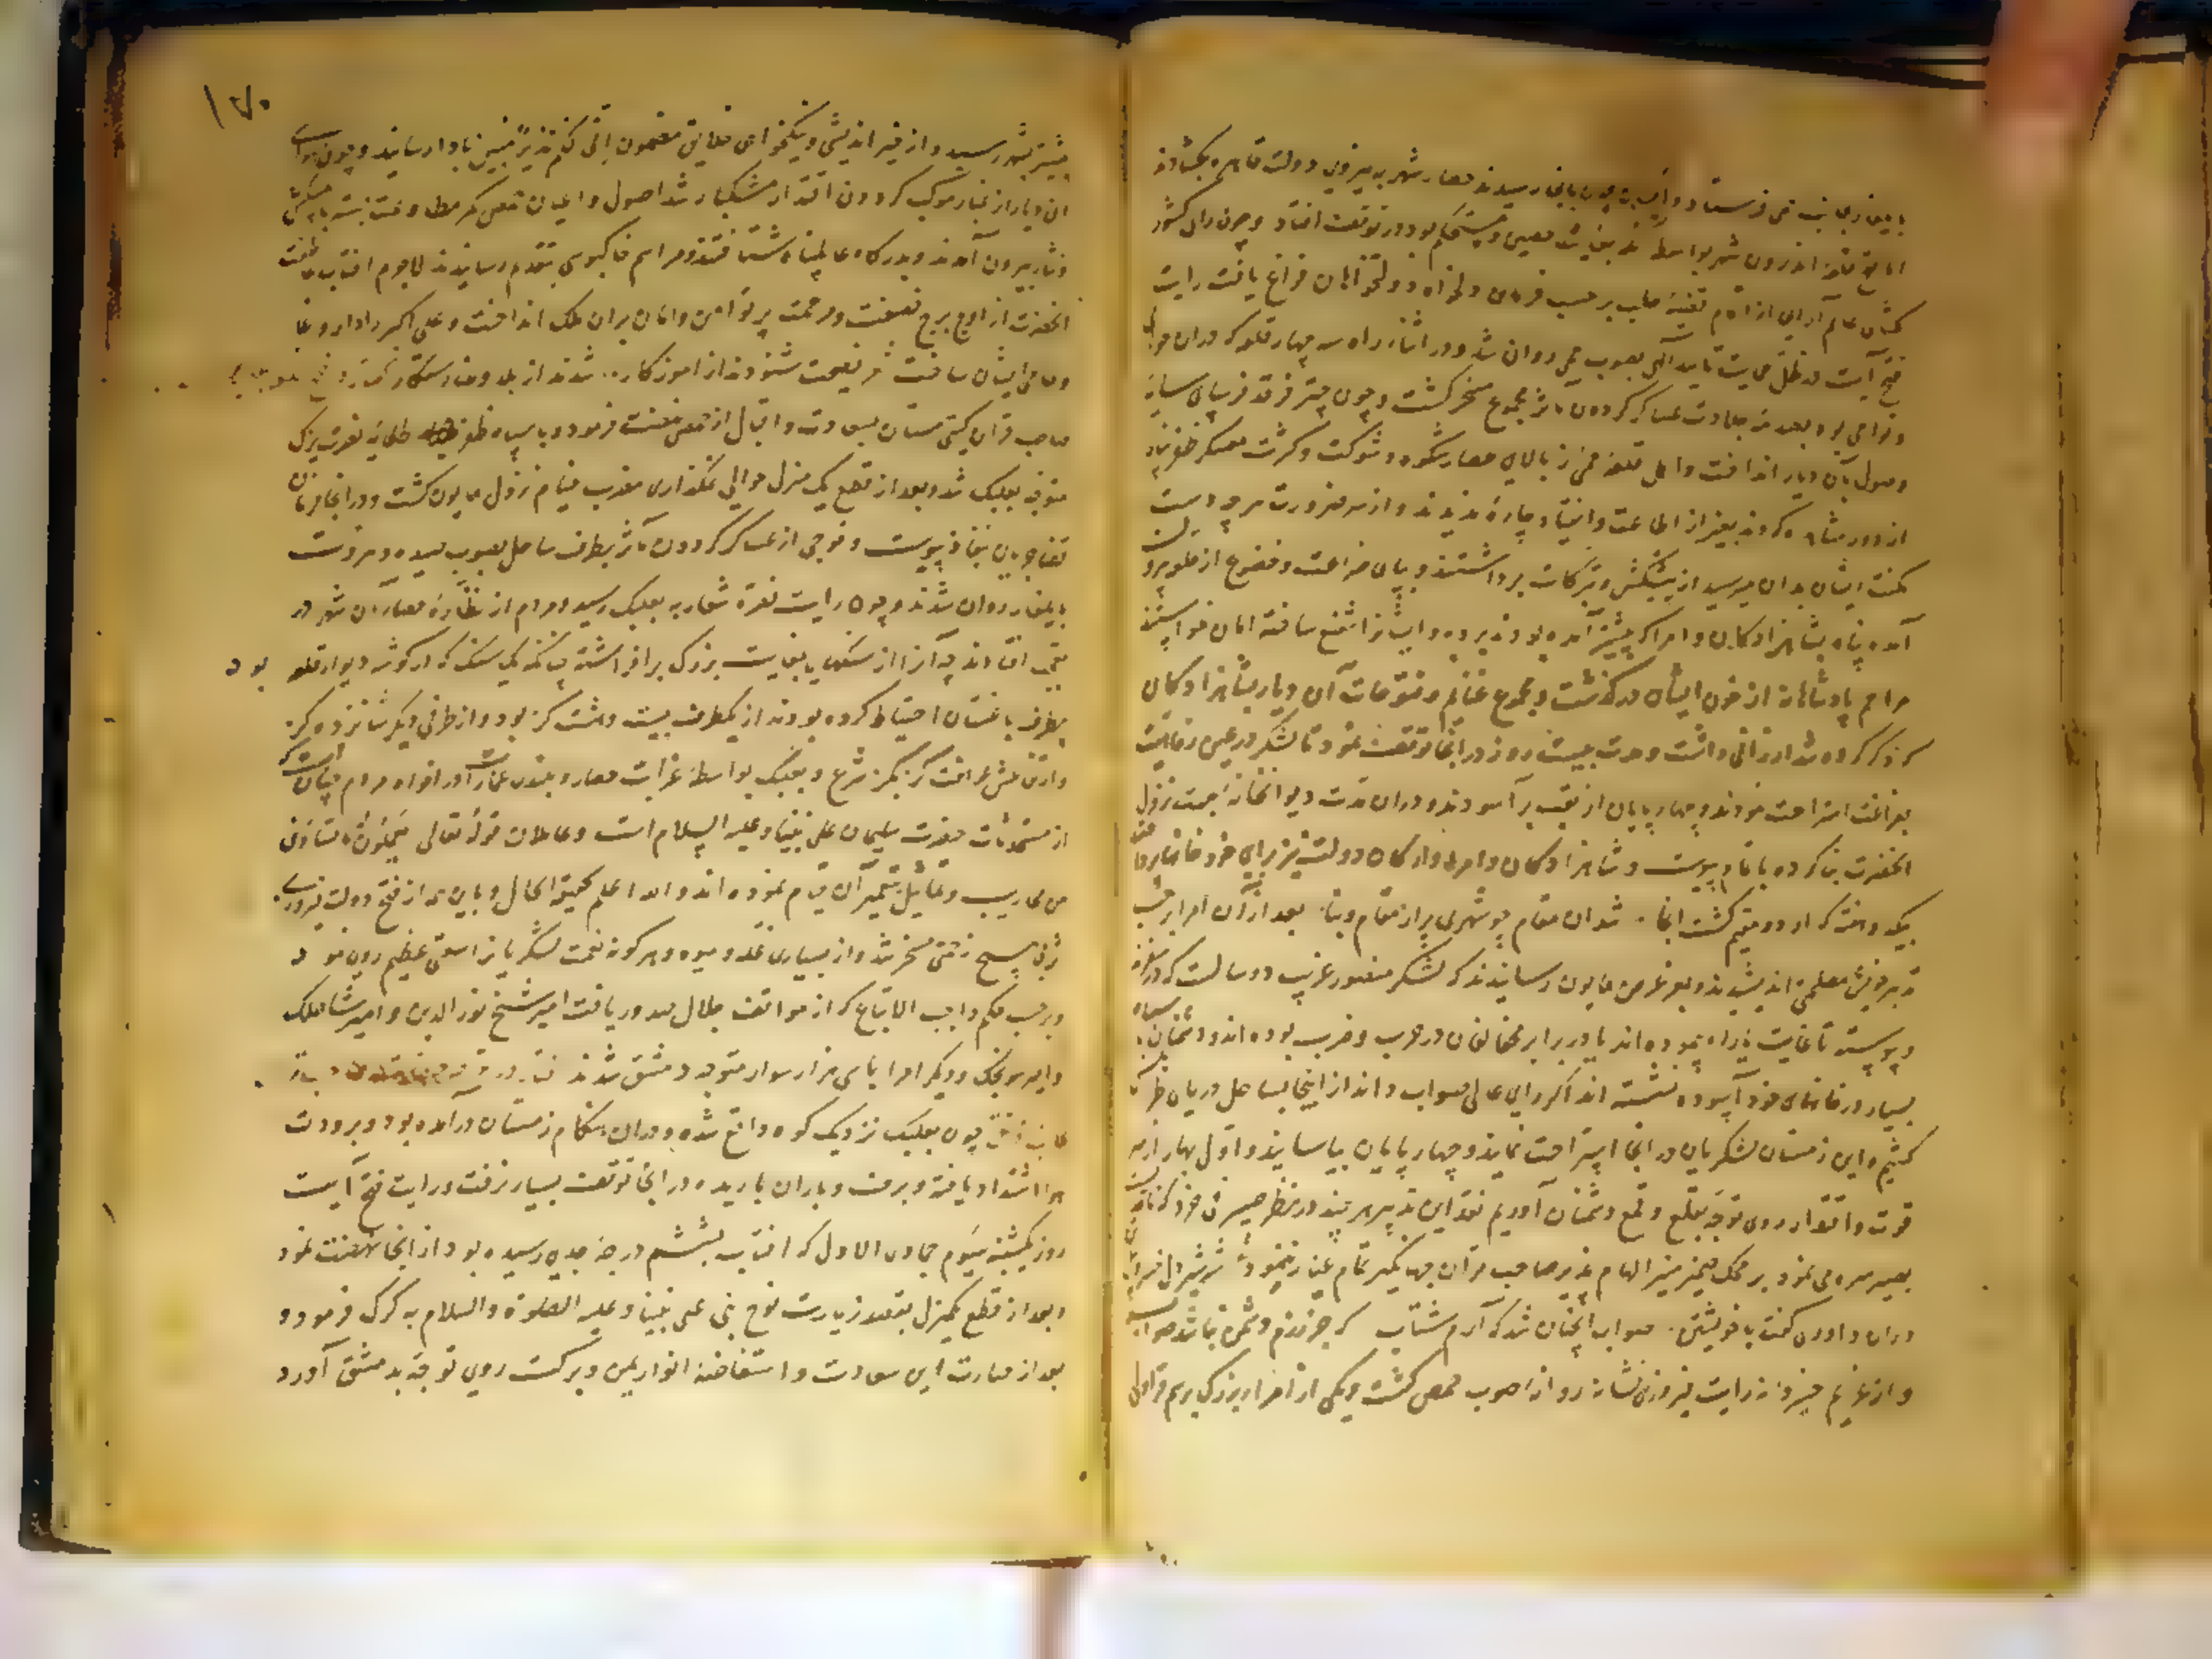 بایلغار بجانب حمی فرستاد و ایشان چون بانجا رسیدند حصار شهر به نیروی دولت قاهره بکشادند
اما فتح قلعه اندرون شهر بواسطه آنکه بغایت حصین و مستحکم بود در توقف افتاد و چون رای کشور
کشای عالم آرای از قضیه حلب بر حسب فرمان دلخواه دولتخواهان فراغ یافت رایت
فتح آیت در ظل حمایت تأیید الهی بصوب حمی روان شد و در اثناء راه سه چهار قلعه که دران حوالی
و نواحی بود بعد جلادت عساکر گردون مآثر مجموع مسخر کشت و چون چتر فرقد فرسای سایه
وصول بآن دیار انداخت و اهل قلعه حمی ز بالای حصار شکوه و شوکت و کثرت معسکر ظفرپناه
از دور مشاهده کردند بغیر از اطاعت و انقیاد چاره ندیدند و از سر ضرورت هرچه دست
مکنت ایشان بدان میرسید از پیشکش و تبرکات برداشتند و بپای ضراعت و خضوع از قلعه بیرون
آمده پناه بشاهزادکان و امرا که پیشتر آمده بودند بردند و ایشانرا شفیع ساخته امان خواستند
مراحم پادشاهانه از خون ایشان درکذشت و مجموع غنایم و فتوحات آن دیار بشاهزادکان
که ذکر کرده شد ارزانی داشت و مدت بیست روز در انجا توقف نمود تا لشکر در عین رفاهیت
بفراغت استراحت نمودند و چهارپایان از تعب برآسودند و دران مدت دیوانخانه بجهت نزول
انحضرت بنا کرده باتمام پیوست و شاهزادکان و امرا و ارکان دولت نیز برای خود خانها
بیک دو هفته که اردو مقیم کشت انجا . شد ان مقام چو شهری پر از مقام و بنا . بعد از آن امرا
تدبیر و پیش مصلحتی اندیشیدند و بعرض همایون رسانیدند که لشکر منصور قریب دو سالست که
و پیوسته تا غایت یا راه پیموده اند یا در برابر مخالفان در حرب و ضرب بوده اند و دشمنان
بسیار در خانهای خود آسوده نشسته اند اگر رای عالی صواب داند از اینجا بساحل دریای
کشیم و این زمستان لشکریان در انجا استراحت نمایند و چهارپایان بیاسایند و اول بهار از سر
قوت و اقتدار روی توجه بقلع و قمع دشمنان آوریم نقد این تدبیر هرچند در نظر صیرفی خرد
بصیر سره می نمود بر محک ضمیر منیر الهام پذیر صاحب قران جهانکیر تمام عیار ننمود
دران داوری گفت با خویشتن . صواب انچنان شد که آرم شتاب که جز رزم دشمن نباشد صواب
و از عزیم خسروانه رایت فیروزی نشانه روانه صوب حمص کشت و یکی از امراء بزرگ برسم قراولی
۱۷۰
پیشتر بشهر رسید و از خیر اندیشی و نیکخواهی خلایق مضمون انی لکم نذیر مبین بادا رسانید و چون
ان دیار از غبار موکب گردون اقتدار مشکبار شد اصول و اعیان حمص کمر طاعت بسته با پیشکش
و نثار بیرون آمدند و بدرکاه عالم پناه شتافتند و مراسم خاکبوسی بتقدیم رسانیدند لاجرم افتاب عاطفت
انحضرت از اوج برج نصفت و مرحمت پرتو امن و امان بران ملک انداخت و علی اکبر را داروغا
و حامی ایشان ساخت نصیحت شنودند از اموزکار . . شدند از بلا
صاحب قران گیتی ستان بسعادت و اقبال از حمص نهضت فرمود و با سپاه ظفر طلایه نصرت یزک
متوجه بعلبک شد و بعد از قطع یک منزل حوالی نمکزاری مضرب خیام نزول همایون کشت و در انجا فرمان
قضا جریان بنفاذ پیوست و فوجی از عساکر گردون مآثر بطرف ساحل بصوب صیدا و بیروت
بایلغار روان شدند و چون رایت نصرة شعار به بعلبک رسید مردم از نظاره حصار ان شهر در
تعجب افتادند چه آنرا از سنکهای بغایت بزرگ برافراشته چنانکه یک سنک که از گوشه دیوار قلعه بود
بطرف باغستان احتیاط کرده بودند از یکطرف بیست و هشت کز بود و از طرفی دیگر شانزده کز
وارتفاعش هفت کز بکز شرع و بعلبک بواسطه غرابت حصار و بلندی عمارات در افواه مردم چنان است که
از مستحدثات حضرت سلیمان علی نبینا و علیه السلام است و عاملان قوله تعالی یعملون له ما یشاء
من محاریب و تماثیل بتعمیر آن قیام نموده اند والله اعلم بحقیقة الحال و باین همه از فتح دولت
بی هیچ زحمتی مسخر شد و از بسیاری غله و میوه و هر کونه نعمت لشکریانرا وسعتی عظیم روی نمود
و بر حسب حکم واجب الاتباع که از مواقف جلال صدور یافت امیر شیخ نورالدین و امیر شاه ملک
و امیر سونجک و دیگر امرا با سی هزار سوار متوجه دمشق شدند
چون بعلبک نزدیک کوه واقع شده و دران هنکام زمستان درآمده بود و برودت
هوا اشتداد یافته و برف و باران باریده در انجا توقف بسیار نرفت و رایت فتح آیت
روز یکشنبه سیوم جمادی الاول که افتاب بششم درجه جدی رسیده بود از انجا نهضت نمود
و بعد از قطع یکمنزل بقصد زیارت نوح نبی علی نبینا و علیه الصلوة والسلام به کرک فرمود و
بعد از حیازت این سعادت و استفاضه انوار یمن و برکت روی توجه بدمشق آورد